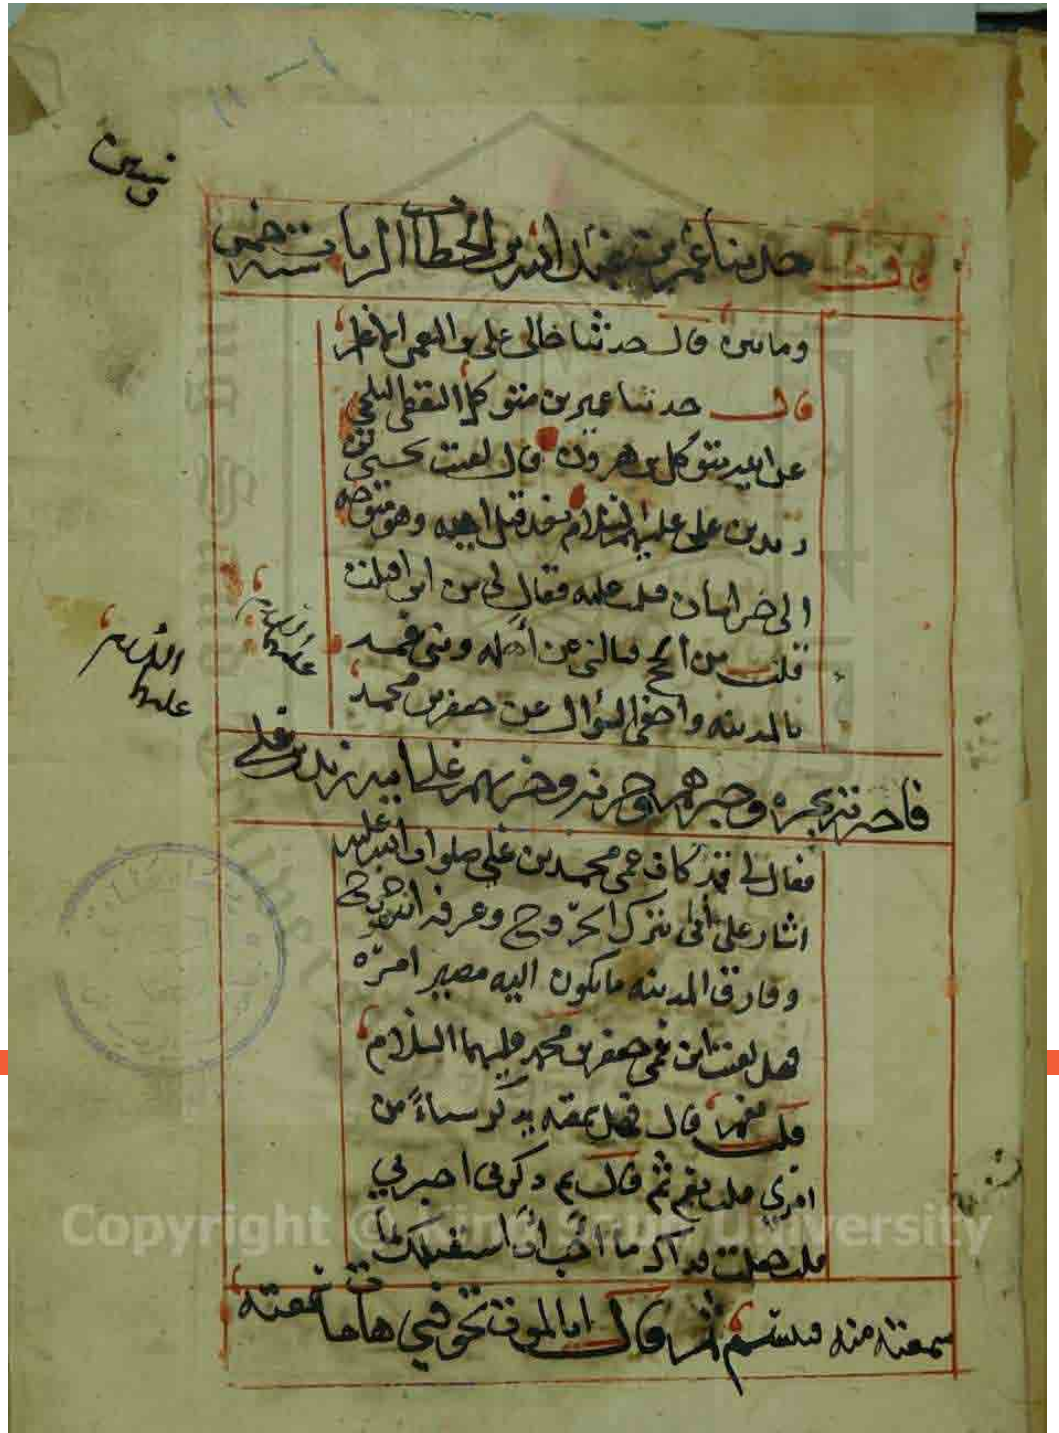 وستين
قال حدثنا عمر بن عبد الله بن الخطاب الزيات سنة خمس
ومائتين قال حدثنا خالي علي بن النعمن الاعلم
قال حدثنا عمير بن متوكل الثقفي البلخي
عن ابيه متوكل بن هرون قال لقيت يحيى بن
زيد بن علي عليهم السلام بعد قتل ابيه وهو متوجه
الى خراسان فقال لي من اين اقبلت
قلت من الحج فسالني عن اهله وبني عمه
بالمدينه واحفى السؤال عن جعفر بن محمد
عليهما السلام
عليهما السلام
فاخبرته بخبره وخبرهم وحزنهم على ابيه زيد بن علي
فقال لي قد كان عمي محمد بن علي صلوات الله عليه
اشار على ابي بترك الخروج وعرفه ان خرج
وفارق المدينه ما يكون اليه مصير امره
فهل لقيت ابن عمي جعفر بن محمد عليهما السلام
قلت نعم قال فهل سمعته يذكر شياءً من
امري قلت نعم ثم قال بم ذكرني اخبرني
قلت جعلت فداك ما احب ان استقبلك بما
سمعته منه ثم قال ابالموت تخوفني هات ما سمعته
Copyright © King Saud University